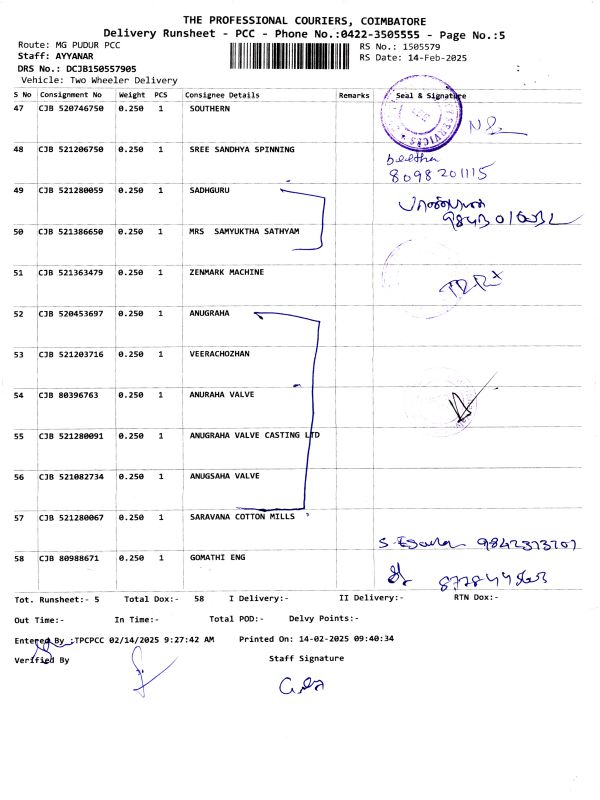 THE PROFESSIONAL COURIERS, COIMBATORE
Delivery Runsheet - PCC - Phone No.:0422-3505555 - Page No.:5
Route: MG PUDUR PCC RS No.: 1505579
Staff: AYYANAR RS Date: 14-Feb-2025
DRS No.: DCJB150557905
Vehicle: Two Wheeler Delivery
S No Consignment No Weight PCS Consignee Details Remarks Seal & Signature
47 CJB 520746750 0.250 1 SOUTHERN
48 CJB 521206750 0.250 1 SREE SANDHYA SPINNING
8098201115
49 CJB 521280059 0.250 1 SADHGURU
50 CJB 521386650 0.250 1 MRS SAMYUKTHA SATHYAM
51 CJB 521363479 0.250 1 ZENMARK MACHINE
52 CJB 520453697 0.250 1 ANUGRAHA
53 CJB 521203716 0.250 1 VEERACHOZHAN
54 CJB 80396763 0.250 1 ANURAHA VALVE
55 CJB 521280091 0.250 1 ANUGRAHA VALVE CASTING LTD
56 CJB 521082734 0.250 1 ANUGSAHA VALVE
57 CJB 521280067 0.250 1 SARAVANA COTTON MILLS
58 CJB 80988671 0.250 1 GOMATHI ENG
Tot. Runsheet:- 5 Total Dox:- 58 I Delivery:- II Delivery:- RTN Dox:-
Out Time:- In Time:- Total POD:- Delvy Points:-
Entered By :TPCPCC 02/14/2025 9:27:42 AM Printed On: 14-02-2025 09:40:34
Verified By Staff Signature